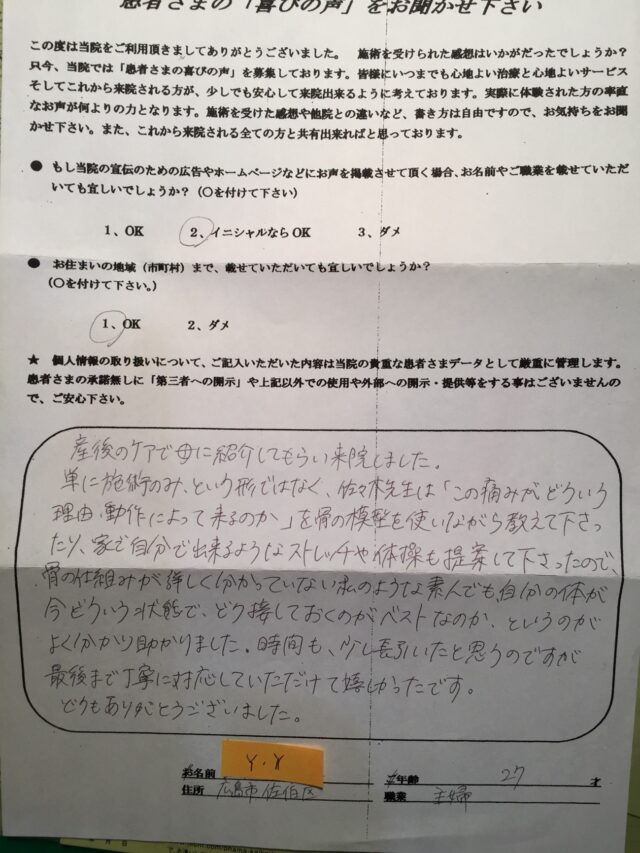 患者さまの「喜びの声」をお聞かせ下さい
この度は当院をご利用頂きましてありがとうございました。 施術を受けられた感想はいかがだったでしょうか？
只今、当院では「患者さまの喜びの声」を募集しております。皆様にいつまでも心地よい治療と心地よいサービス
そしてこれから来院される方が、少しでも安心して来院出来るように考えております。実際に体験された方の率直
なお声が何よりの力となります。施術を受けた感想や他院との違いなど、書き方は自由ですので、お気持ちをお聞
かせ下さい。また、これから来院される全ての方と共有出来ればと思っております。
● もし当院の宣伝のための広告やホームページなどにお声を掲載させて頂く場合、お名前やご職業を載せていただ
いても宜しいでしょうか？（〇を付けて下さい）
1、OK 2、イニシャルならOK 3、ダメ
● お住まいの地域（市町村）まで、載せていただいても宜しいでしょうか？
（〇を付けて下さい。）
1、OK 2、ダメ
★ 個人情報の取り扱いについて、ご記入いただいた内容は当院の貴重な患者さまデータとして厳重に管理します。
患者さまの承諾無しに「第三者への開示」や上記以外での使用や外部への開示・提供等をする事はございませんの
で、ご安心下さい。
産後のケアで母に紹介してもらい来院しました。
単に施術のみ、という形ではなく、佐々木先生は「この痛みがどういう
理由、動作によって来るのか」を骨の模型を使いながら教えて下さっ
たり、家で自分で出来るようなストレッチや体操も提案して下さったので、
骨の仕組みが詳しく分かっていない私のような素人でも自分の体が
今どういう状態で、どう接しておくのがベストなのか、というのが
よく分かり助かりました。時間も、少し長引いたと思うのですが
最後まで丁寧に対応していただけて嬉しかったです。
どうもありがとうございました。
お名前 Y.Y ご年齢 27 才
住所 広島市佐伯区 職業 主婦